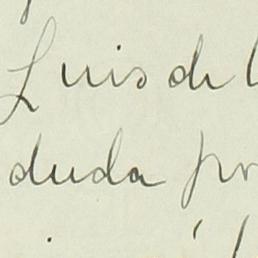 Luis de
duda por